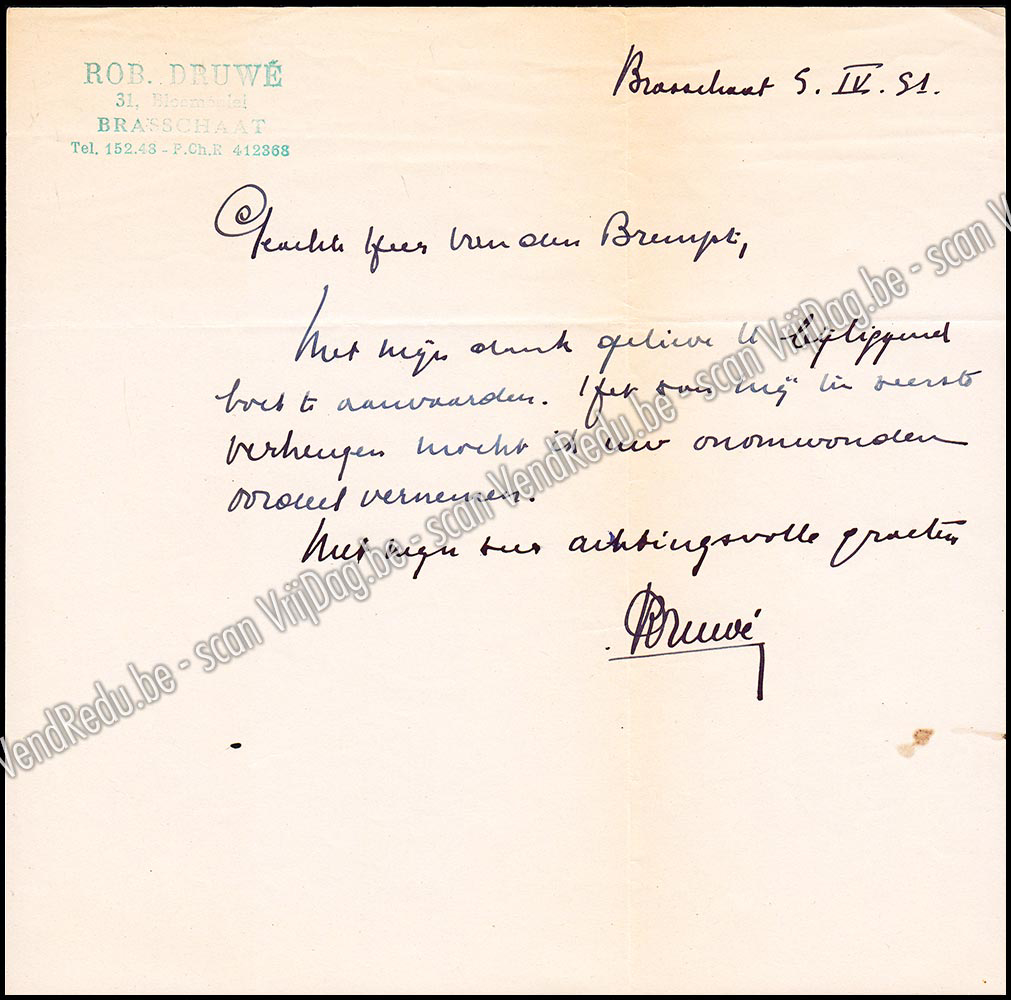 ROB. DRUWÉ
31, Bloemenlei
BRASSCHAAT
Tel. 152.48 - P.Ch.R 412368
Brasschaat 5. IV. 51.
Geachte Heer Van den Brempt,
Met mijn dank gelieve U bijliggend
boek te aanvaarden. Het zou mij ten zeerste
verheugen mocht ik uw onomwonden
oordeel vernemen.
Met mijn zeer achtingsvolle groeten
RDruwé
VendRedu.be - scan VrijDag.be - scan VendRedu.be - scan VrijDag.be - scan